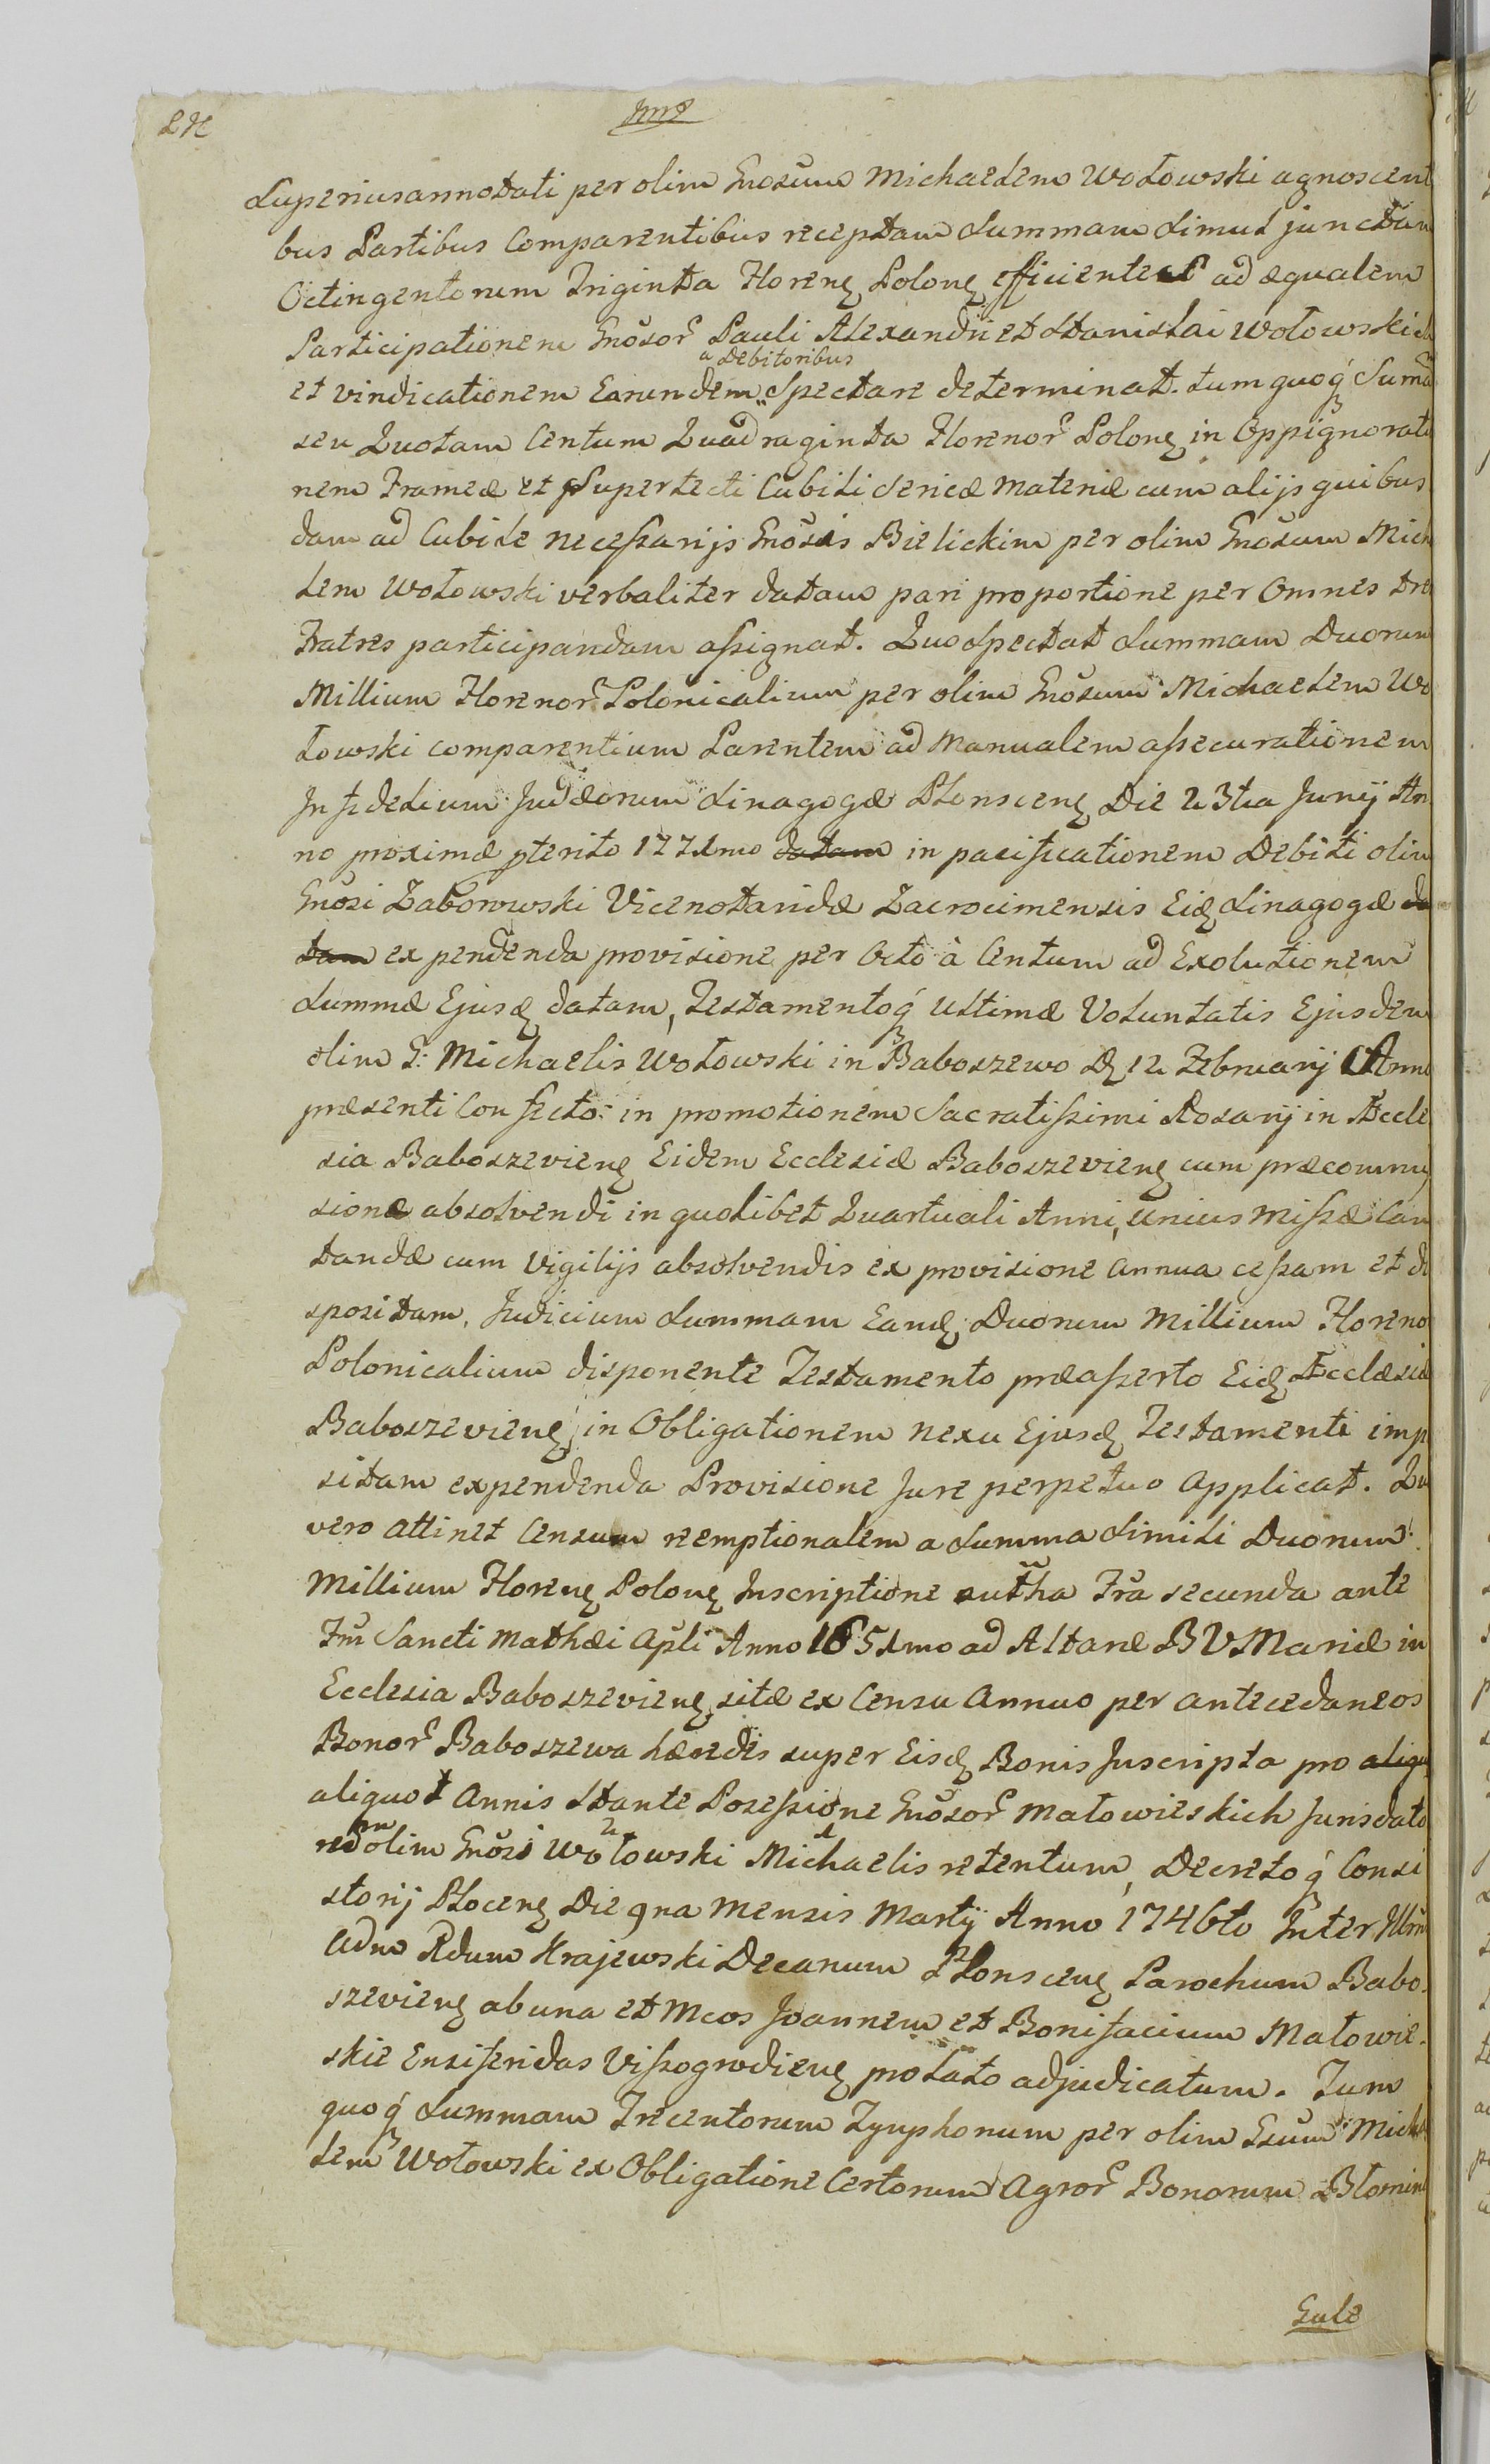 Superiusannotati per olim Gnosum Michaelem Wołowski agnoscenti
bus Partibus Comparentibus receptam Summam Simul junctam
Octingentorum Triginta Floren Polon efficientes ad æqualem
Participationem Gnosor Pauli Alexandri et Stanislai Wołowskich
a Debitoribus
et vindicationem Earundem Spectare determinat. tum quoq Sumã
seu Quotam Centum Quadraginta Florenor Polon in Oppignoratio
nem Frameæ et Supertecti Cubili Sericæ Materiæ cum alijs quibus
dam ad Cubile necessarijs Gnosis Bielickim per olim Gnosum Micha
lem Wołowski verbaliter datam pari proportione per Omnes tres
Fratres participandam assignat. Quo Spectat Summam Duorum
Millium Florenor Polonicalium per olim Gnosum Michaelem Wo
łowski comparentium Parentem ad Manualem assecurationem
Infidelium Judæorum Sinagogæ Płonscen Die 23tia Junij An
no proxime pterito 1771mo datam in pacificationem Debiti olim
Gnosi Zaborowski Vicenotaridæ Zacrocimensis Eid Sinagogæ da
tam expendenda provisione per Octo à Centum ad Exolutionem
Summæ Ejusd datam, Testamentoq Ultimæ Voluntatis Ejusdem
olim G: Michaelis Wołowski in Baboszewo D 12 Februarij Anno
præsenti Confecto in promotionem Sacratissimi Rosarij in Eccle
sia Baboszevien Eidem Ecclesiæ Baboszevien cum præcommis
sione absolvendi in quolibet Quartuali Anni, unius Missæ Can
tandæ cum Vigilijs absolvendis ex provisione annua cessam et di
spositam, Judicium Summam Eand Duorum Millium Floreno
Polonicalium disponente Testamento præasserto Eid Ecclæsiæ
Baboszevien in Obligationem nexu Ejusd Testamenti impo
sitam expendenda Provisione Jure perpetuo applicat. Qu
vero attinet Censum reemptionalem a Summa Simili Duorum
Millium Floren Polon Inscriptione auttha Fra secunda ante
Fm Sancti Mathæi Apli Anno 1651mo ad Altare B V Mariæ in
Ecclesia Baboszevien sitæ ex Censu Annuo per antecedaneos
Bonor Baboszewa hæredes super Eisd Bonis Inscripta pro aliqu
aliquot Annis Stante Posessione Gnosor Małowieskich Jurisdato
rum olim Gnosi Wołowski Michaelis retentum, Decretoq Consi
storij Płocen Die 9na Mensis Martij Anno 1746to Inter Illrm
Adm Rdum Krajewski Decanum Płonscen Parochum Babo
szevien ab una et Mcos Joannem et Bonifacium Małowie
skie Ensiferidas Vissogrodien prolato adjudicatum. Tum
quoq Summam Trecentorum Tynphonum per olim Gsum Micha
lem Wołowski ex Obligatione Certorum Agror Bonorum Błomin
Gule